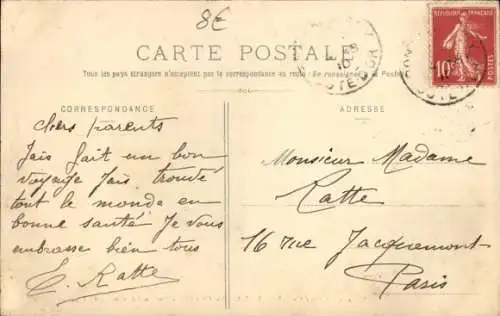 8€
CARTE POSTALE
Tous les pays étrangers n'acceptent pas la correspondance au recto (Se renseigner à la Poste)
CORRESPONDANCE
chers parents
Jais fait un bon
voyage Jais trouvé
tout le monde en
bonne santé Je vous
embrasse bien tous
E. Ratte
RÉPUBLIQUE FRANÇAISE
10c
POSTES
CÔTE D'OR
ADRESSE
Monsieur Madame
Ratte
16 rue Jacquemont
Paris